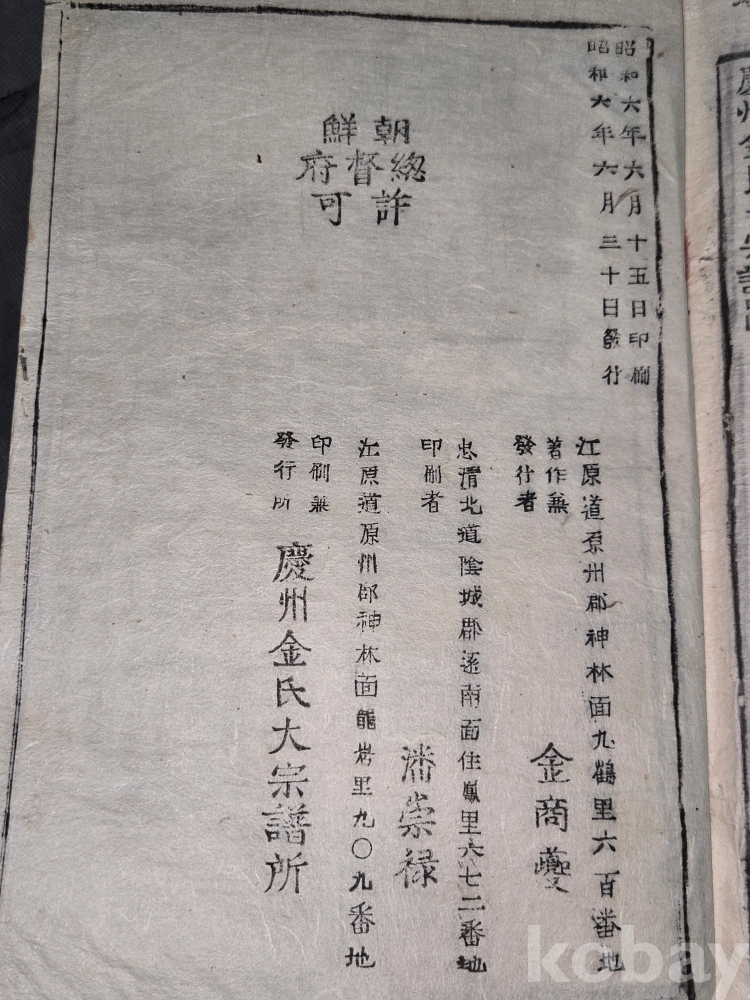 昭和六年六月十五日印刷
昭和六年六月三十日發行
朝鮮
總督府
許可
江原道原州郡神林面九鶴里六百番地
著作兼
發行者
金商夔
忠清北道陰城郡遠南面住鳳里六七二番地
印刷者
潘崇禄
江原道原州郡神林面龍岩里九〇九番地
印刷兼
發行所
慶州金氏大宗譜所
慶州金氏
kobay